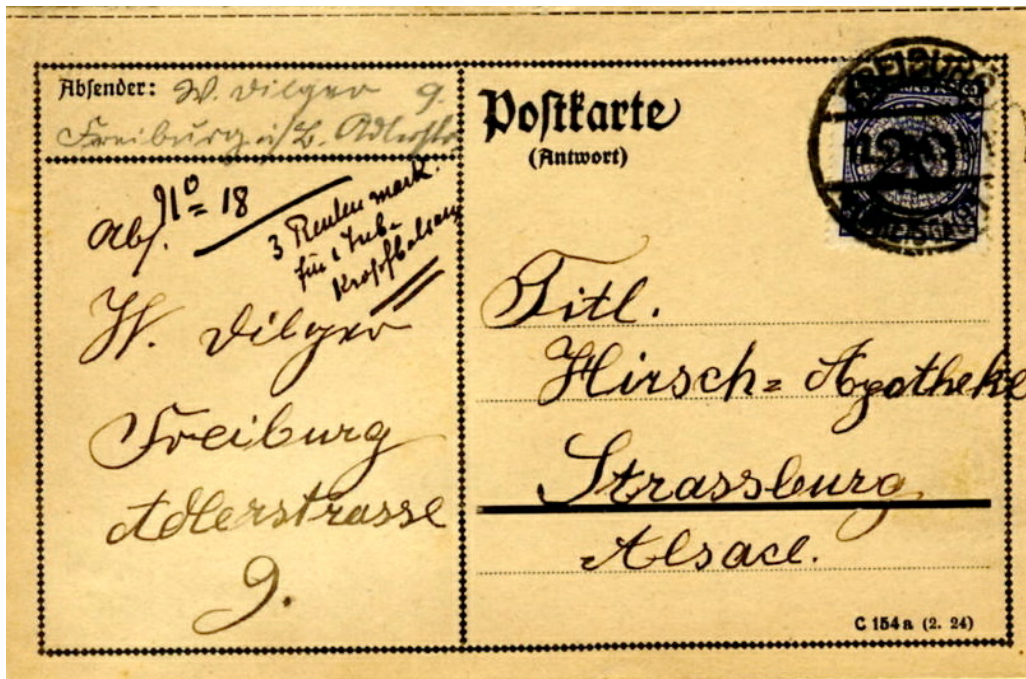 Absender: W. Dilger 9.
Freiburg i/B. Adlerstr.
Abs. No 18
3 Rentenmark
für 1 Tube
Kropfbalsam
W. Dilger
Freiburg
Adlerstrasse
9.
Postkarte
(Antwort)
FREIBURG
20
Titl.
Hirsch=Apotheke
Strassburg
Alsace.
C 154 a (2. 24)